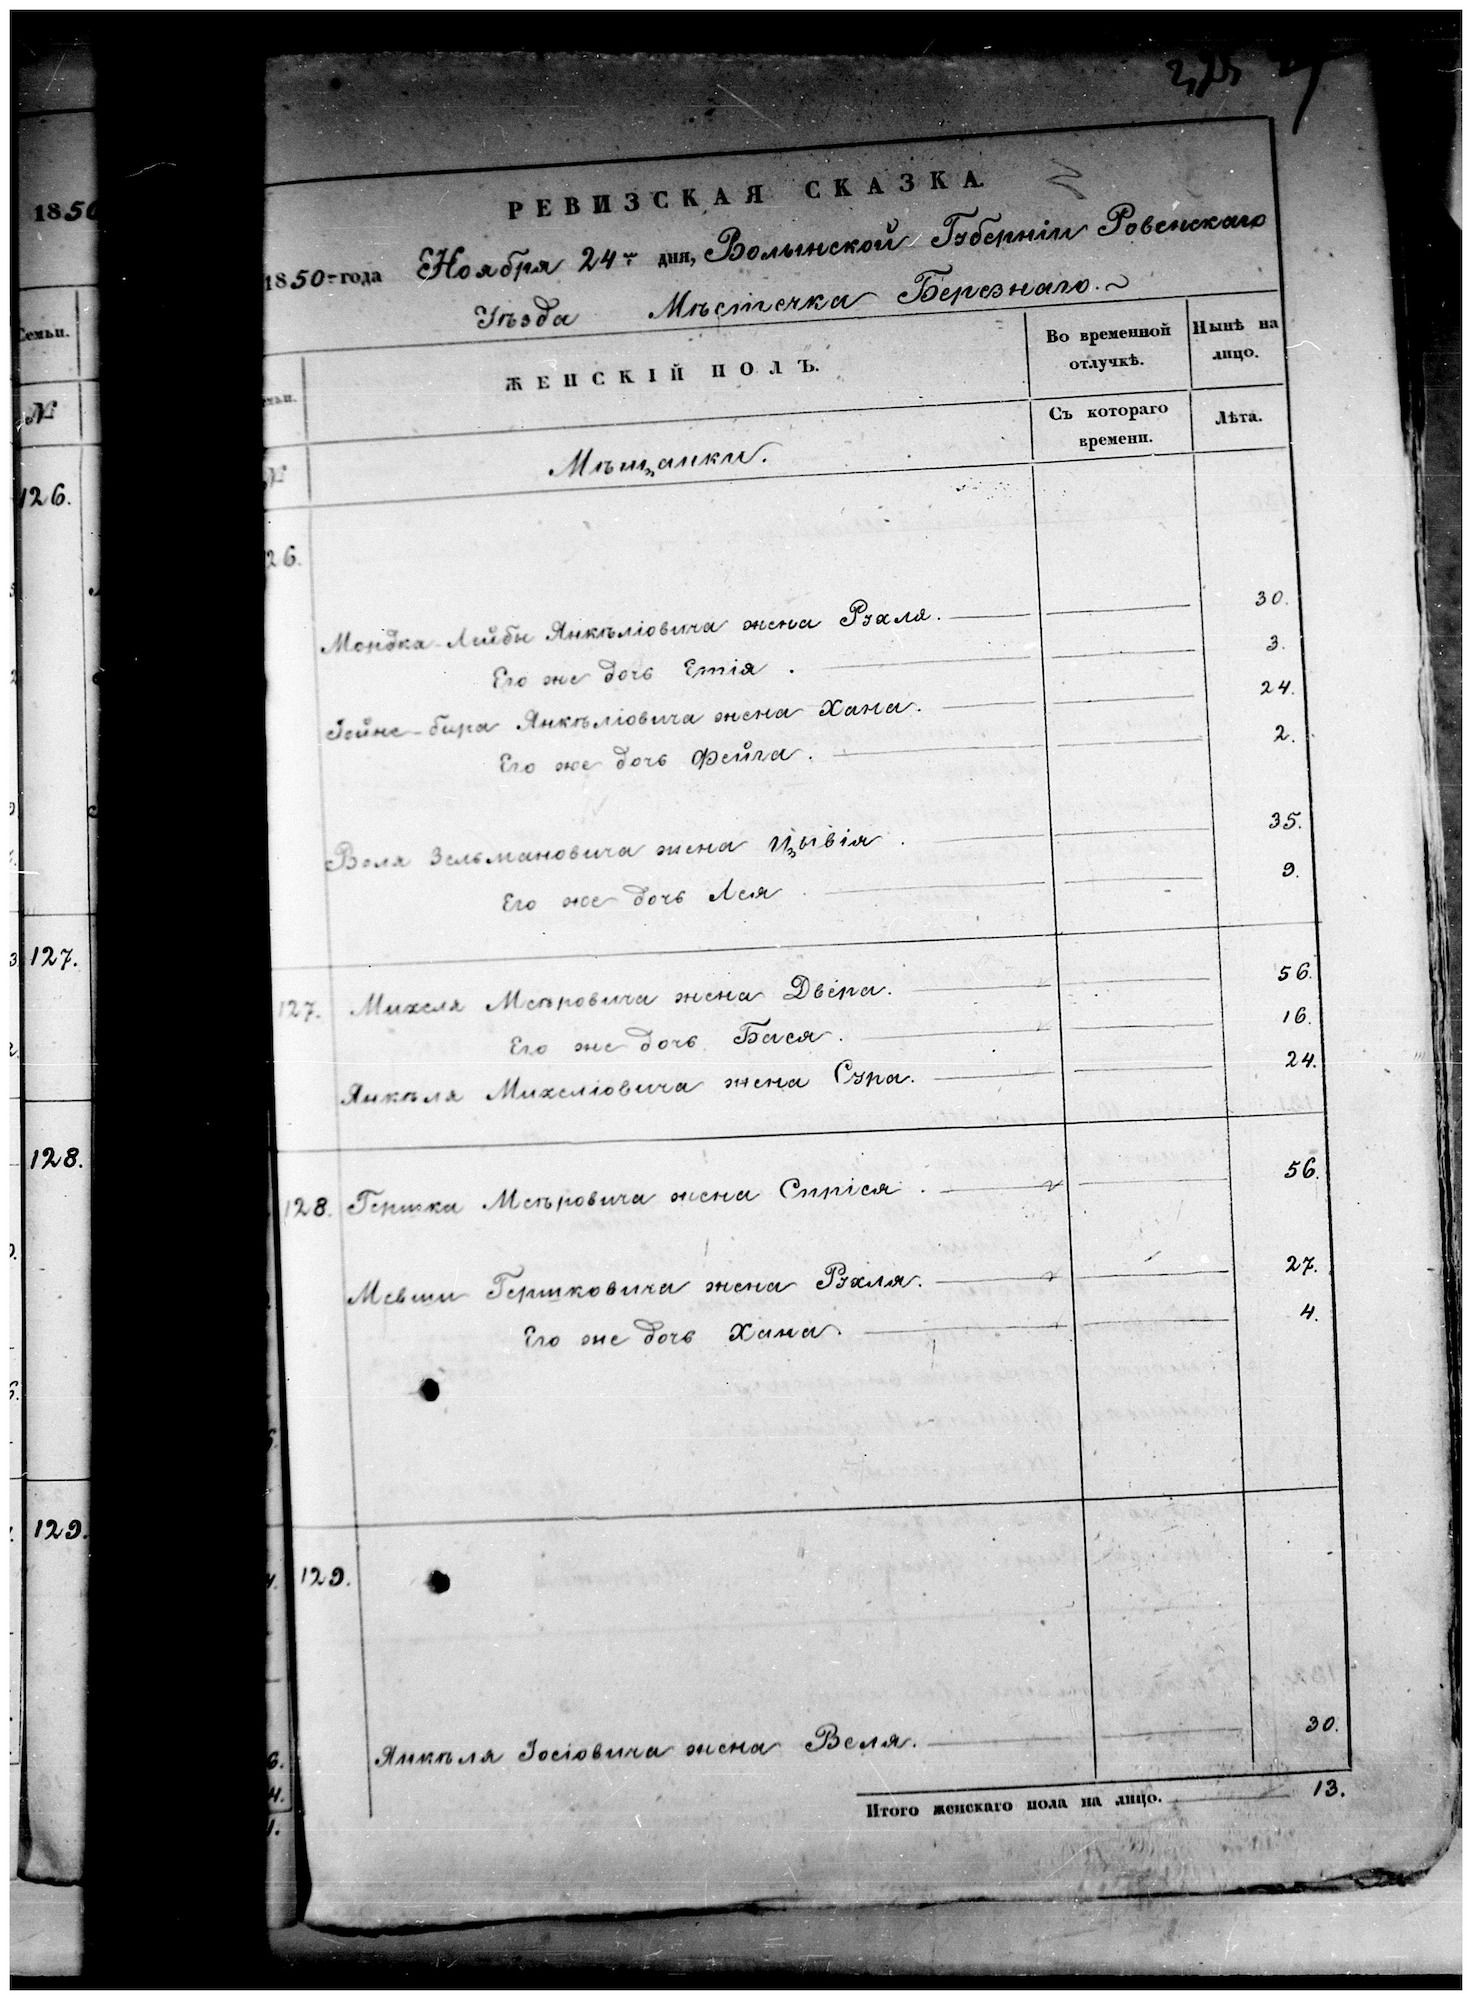 РЕВИЗСКАЯ СКАЗКА.
1850 года Ноября 24 дня, Волынской Губерніи Ровенскаго
Уѣзда Мѣстечка Березнаго.
1850
Семьи.
№
126.
127.
128.
129.
ЖЕНСКІЙ ПОЛЪ.
Во временной отлучкѣ.
Нынѣ на лицо.
№
Мѣщанки.
Съ котораго времени.
Лѣта.
26.
Мордка-Лейбы Янкѣліовича жена Рухля. 30.
Его же дочь Етія. 3.
Янкѣліовича жена Хана. 24.
Его же дочь Фейга. 2.
Воля Зельмановича жена Цывія. 35.
Его же дочь Лея 9.
127. Михеля Меѣровича жена Двера. 56.
Его же дочь Бася. 16.
Янкѣля Михеліовича жена Сура. 24.
128. Гершка Меѣровича жена Спріся. 56.
Мевши Гершковича жена Рухля. 27.
Его же дочь Хана. 4.
129.
Янкѣля Іосіовича жена Веля. 30.
Итого женскаго пола на лицо. 13.